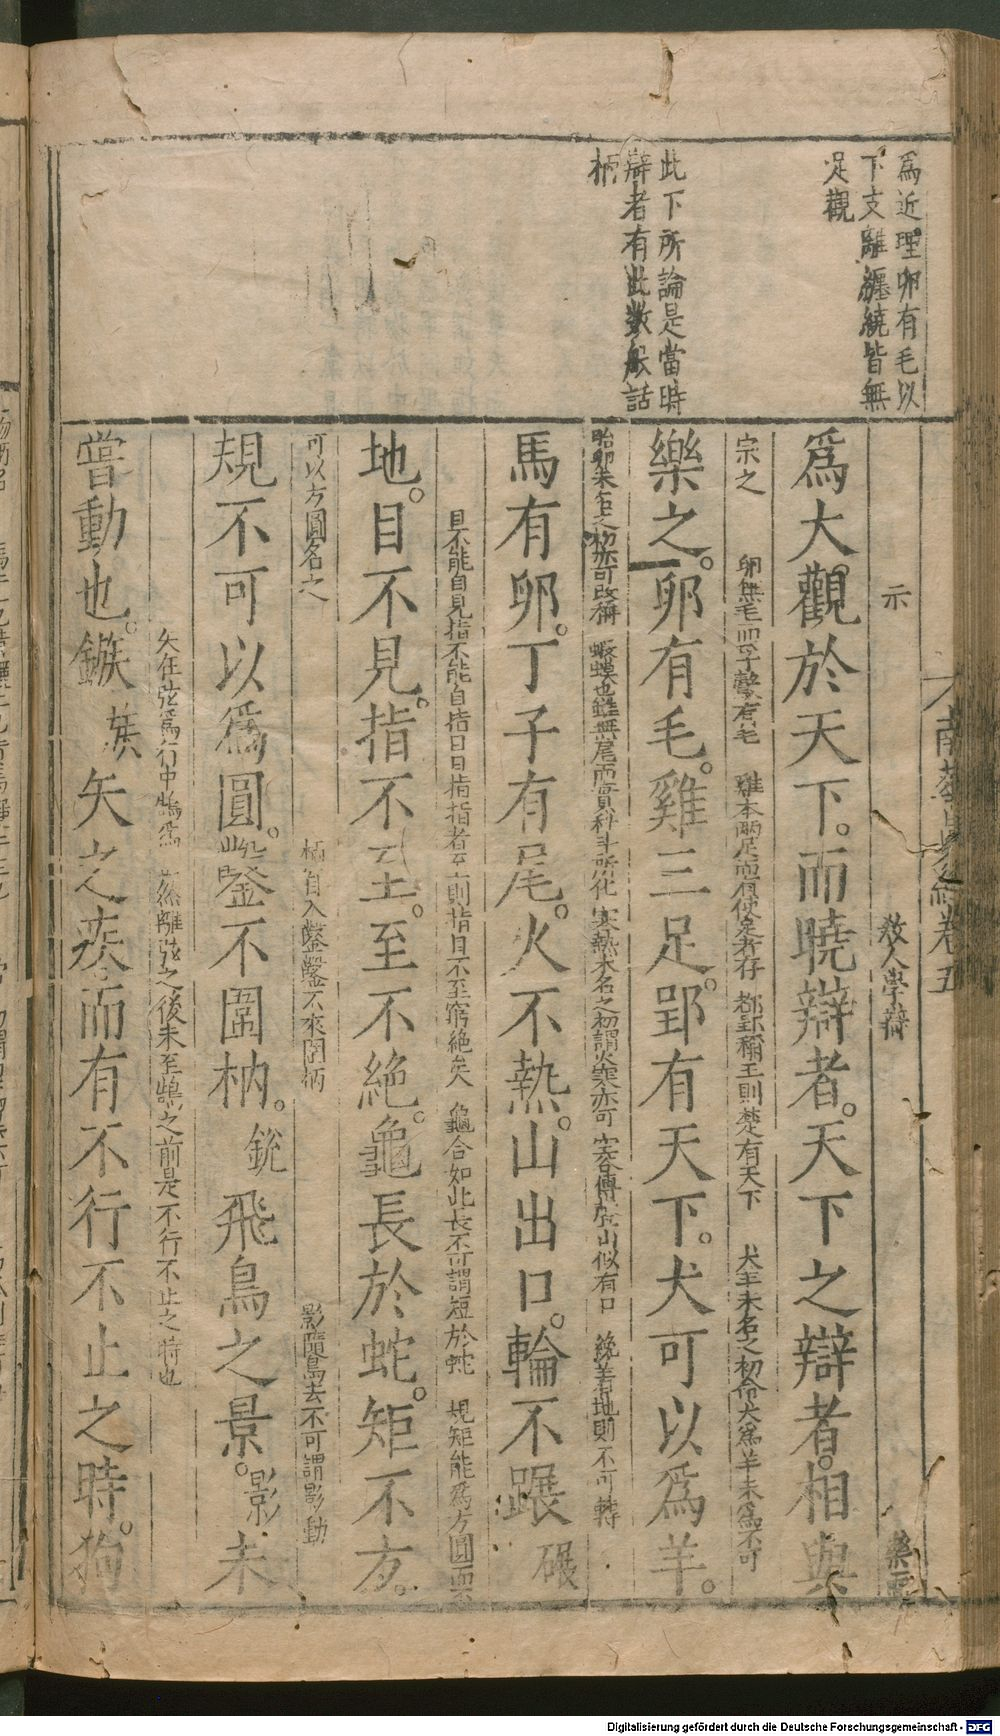 爲近理卵有毛以
下支離纏繞皆無
足觀
此下所論是當時
辯者有此數般話
柄
南華真經卷五
示
教人學辯
樂平
爲大觀於天下。而曉辯者。天下之辯者。相與
宗之
卵無毛而子鷇有毛
雞本兩足而有使足者存
都郢稱王則楚有天下
犬羊未名之初命犬爲羊未爲不可
樂之。卵有毛。雞三足。郢有天下。犬可以爲羊。
胎卵未定之初亦可改稱
蝦蟆也雖無尾而實科斗所化
寒熱未名之初謂火寒亦可
空谷傳聲山似有口
纔着地則不可轉
馬有卵。丁子有尾。火不熱。山出口。輪不蹍碾
目不能自見指不能自指
指者至則指目不至窮絶矣
龜合如此長不可謂短於蛇
規矩能爲方圓而不
地。目不見。指不至。至不絶。龜長於蛇。矩不方。
可以方圓名之
枘自入鑿鑿不來圍枘
影隨鳥去不可謂影動
規不可以爲圓。鑿不圍枘。銳飛鳥之景。影未
矢在弦爲行中鵠爲
然離弦之後未至鵠之前是不行不止之時也
嘗動也。鏃族矢之疾而有不行不止之時。狗
Digitalisierung gefördert durch die Deutsche Forschungsgemeinschaft - DFG